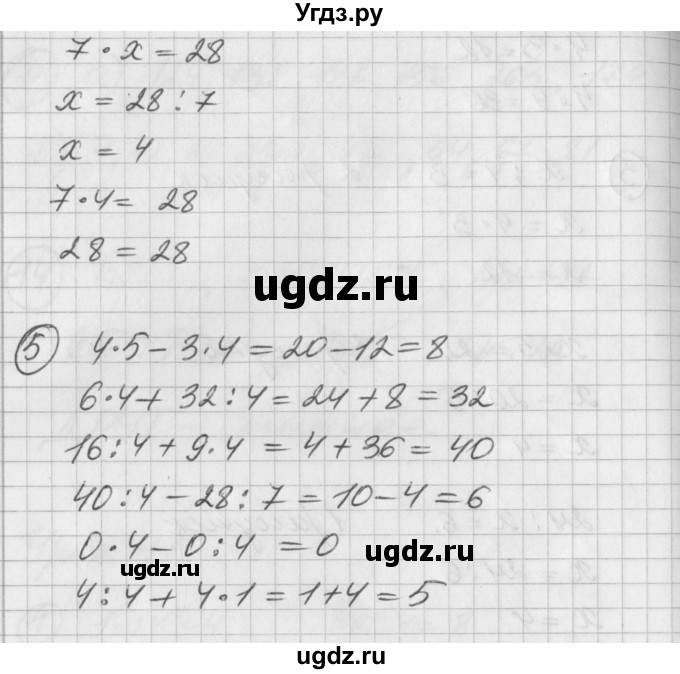 Угдз.ру
7 · x = 28
x = 28 : 7
x = 4
7 · 4 = 28
28 = 28
ugdz.ru
5 4 · 5 - 3 · 4 = 20 - 12 = 8
6 · 4 + 32 : 4 = 24 + 8 = 32
16 : 4 + 9 · 4 = 4 + 36 = 40
40 : 4 - 28 : 7 = 10 - 4 = 6
0 · 4 - 0 : 4 = 0
ugdz.ru
ugdz.ru
4 : 4 + 4 · 1 = 1 + 4 = 5
ugdz.ru